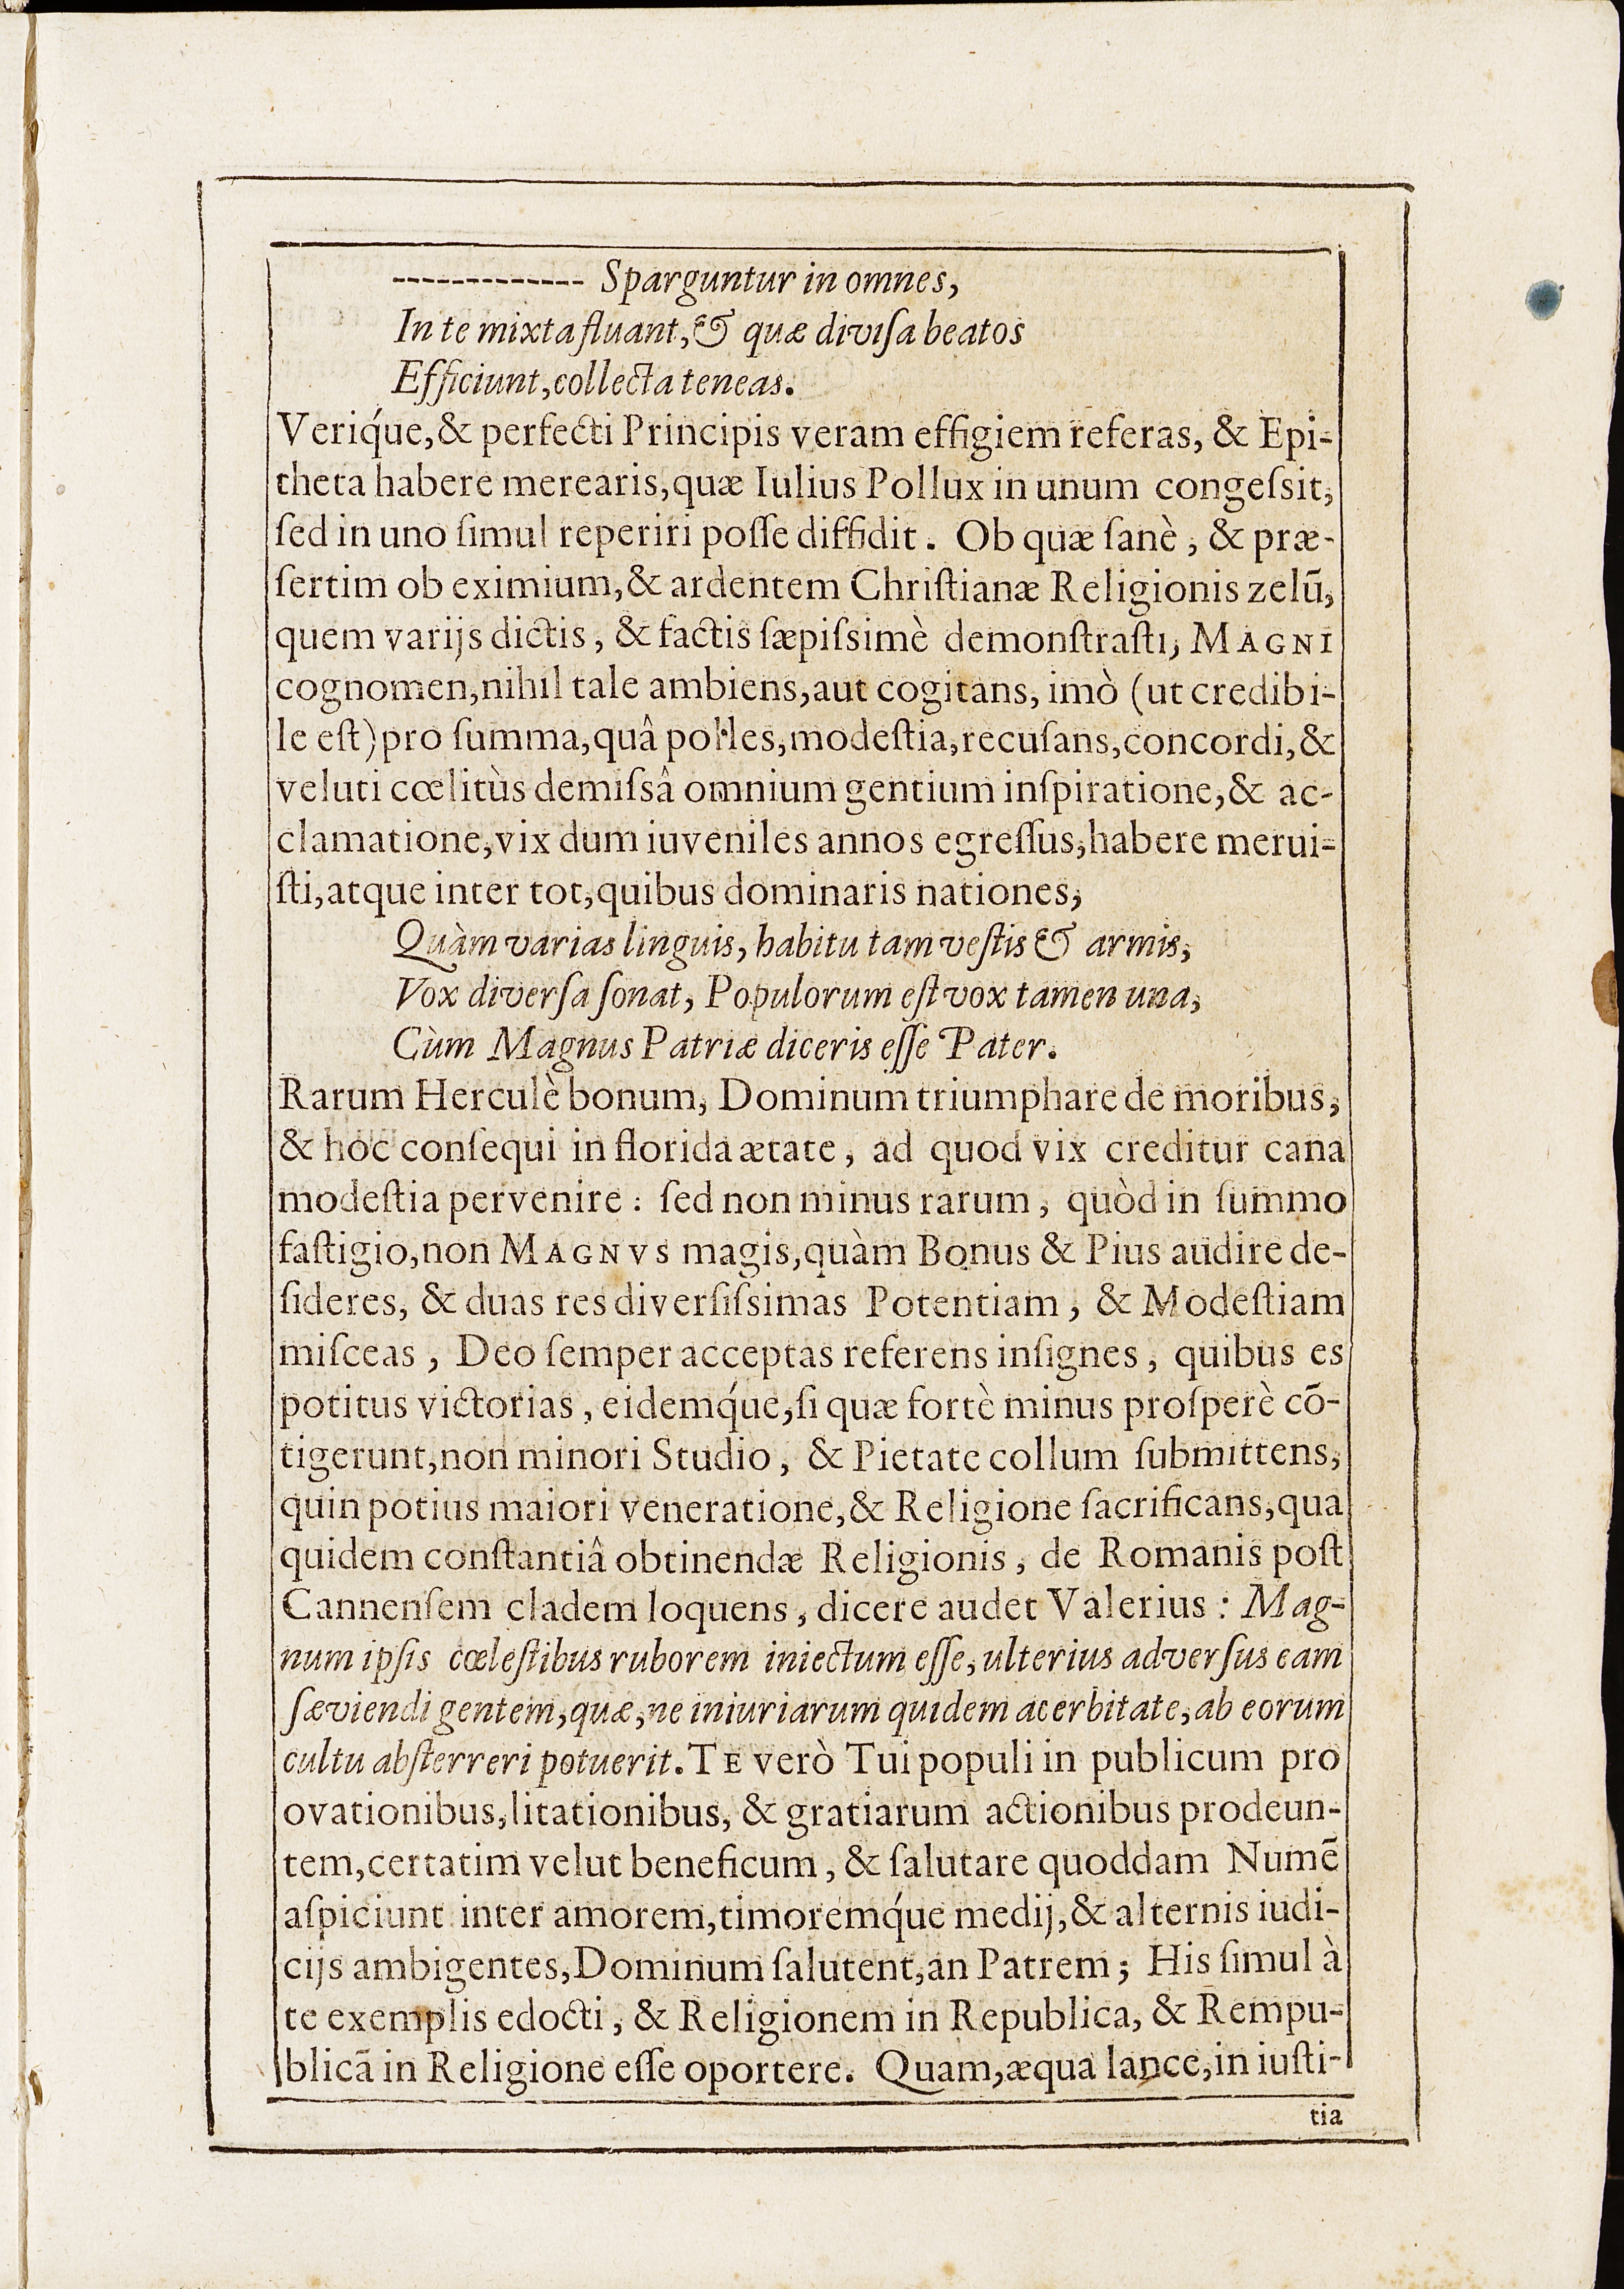 ------------- Sparguntur in omnes,
In te mixta fluant, & quæ diviſa beatos
Efficiunt, collecta teneas.
Veriq́ue, & perfecti Principis veram effigiem referas, & Epi-
theta habere merearis, quæ Iulius Pollux in unum congeſsit,
ſed in uno ſimul reperiri poſſe diffidit. Ob quæ ſanè, & præ-
ſertim ob eximium, & ardentem Chriſtianæ Religionis zelū,
quem varijs dictis, & factis ſæpiſsimè demonſtraſti, MAGNI
cognomen, nihil tale ambiens, aut cogitans, imò (ut credibi-
le eſt) pro ſumma, quâ polles, modeſtia, recuſans, concordi, &
veluti cœlitùs demiſsâ omnium gentium inſpiratione, & ac-
clamatione, vix dum iuveniles annos egreſſus, habere merui-
ſti, atque inter tot, quibus dominaris nationes,
Quàm varias linguis, habitu tam veſtis & armis,
Vox diverſa ſonat, Populorum eſt vox tamen una,
Cùm Magnus Patriæ diceris eſſe Pater.
Rarum Herculè bonum, Dominum triumphare de moribus,
& hoc conſequi in florida ætate, ad quod vix creditur cana
modeſtia pervenire: ſed non minus rarum, quòd in ſummo
faſtigio, non MAGNVS magis, quàm Bonus & Pius audire de-
ſideres, & duas res diverſiſsimas Potentiam, & Modeſtiam
miſceas, Deo ſemper acceptas referens inſignes, quibus es
potitus victorias, eidemq́ue, ſi quæ fortè minus proſperè cō-
tigerunt, non minori Studio, & Pietate collum ſubmittens,
quin potius maiori veneratione, & Religione ſacrificans, qua
quidem conſtantiâ obtinendæ Religionis, de Romanis poſt
Cannenſem cladem loquens, dicere audet Valerius: Mag-
num ipſis cœleſtibus ruborem iniectum eſſe, ulterius adverſus eam
ſæviendi gentem, quæ, ne iniuriarum quidem acerbitate, ab eorum
cultu abſterreri potuerit. TE verò Tui populi in publicum pro
ovationibus, litationibus, & gratiarum actionibus prodeun-
tem, certatim velut beneficum, & ſalutare quoddam Numē
aſpiciunt inter amorem, timoremq́ue medij, & alternis iudi-
cijs ambigentes, Dominum ſalutent, an Patrem; His ſimul à
te exemplis edocti, & Religionem in Republica, & Rempu-
blicā in Religione eſſe oportere. Quam, æqua lance, in iuſti-
tia